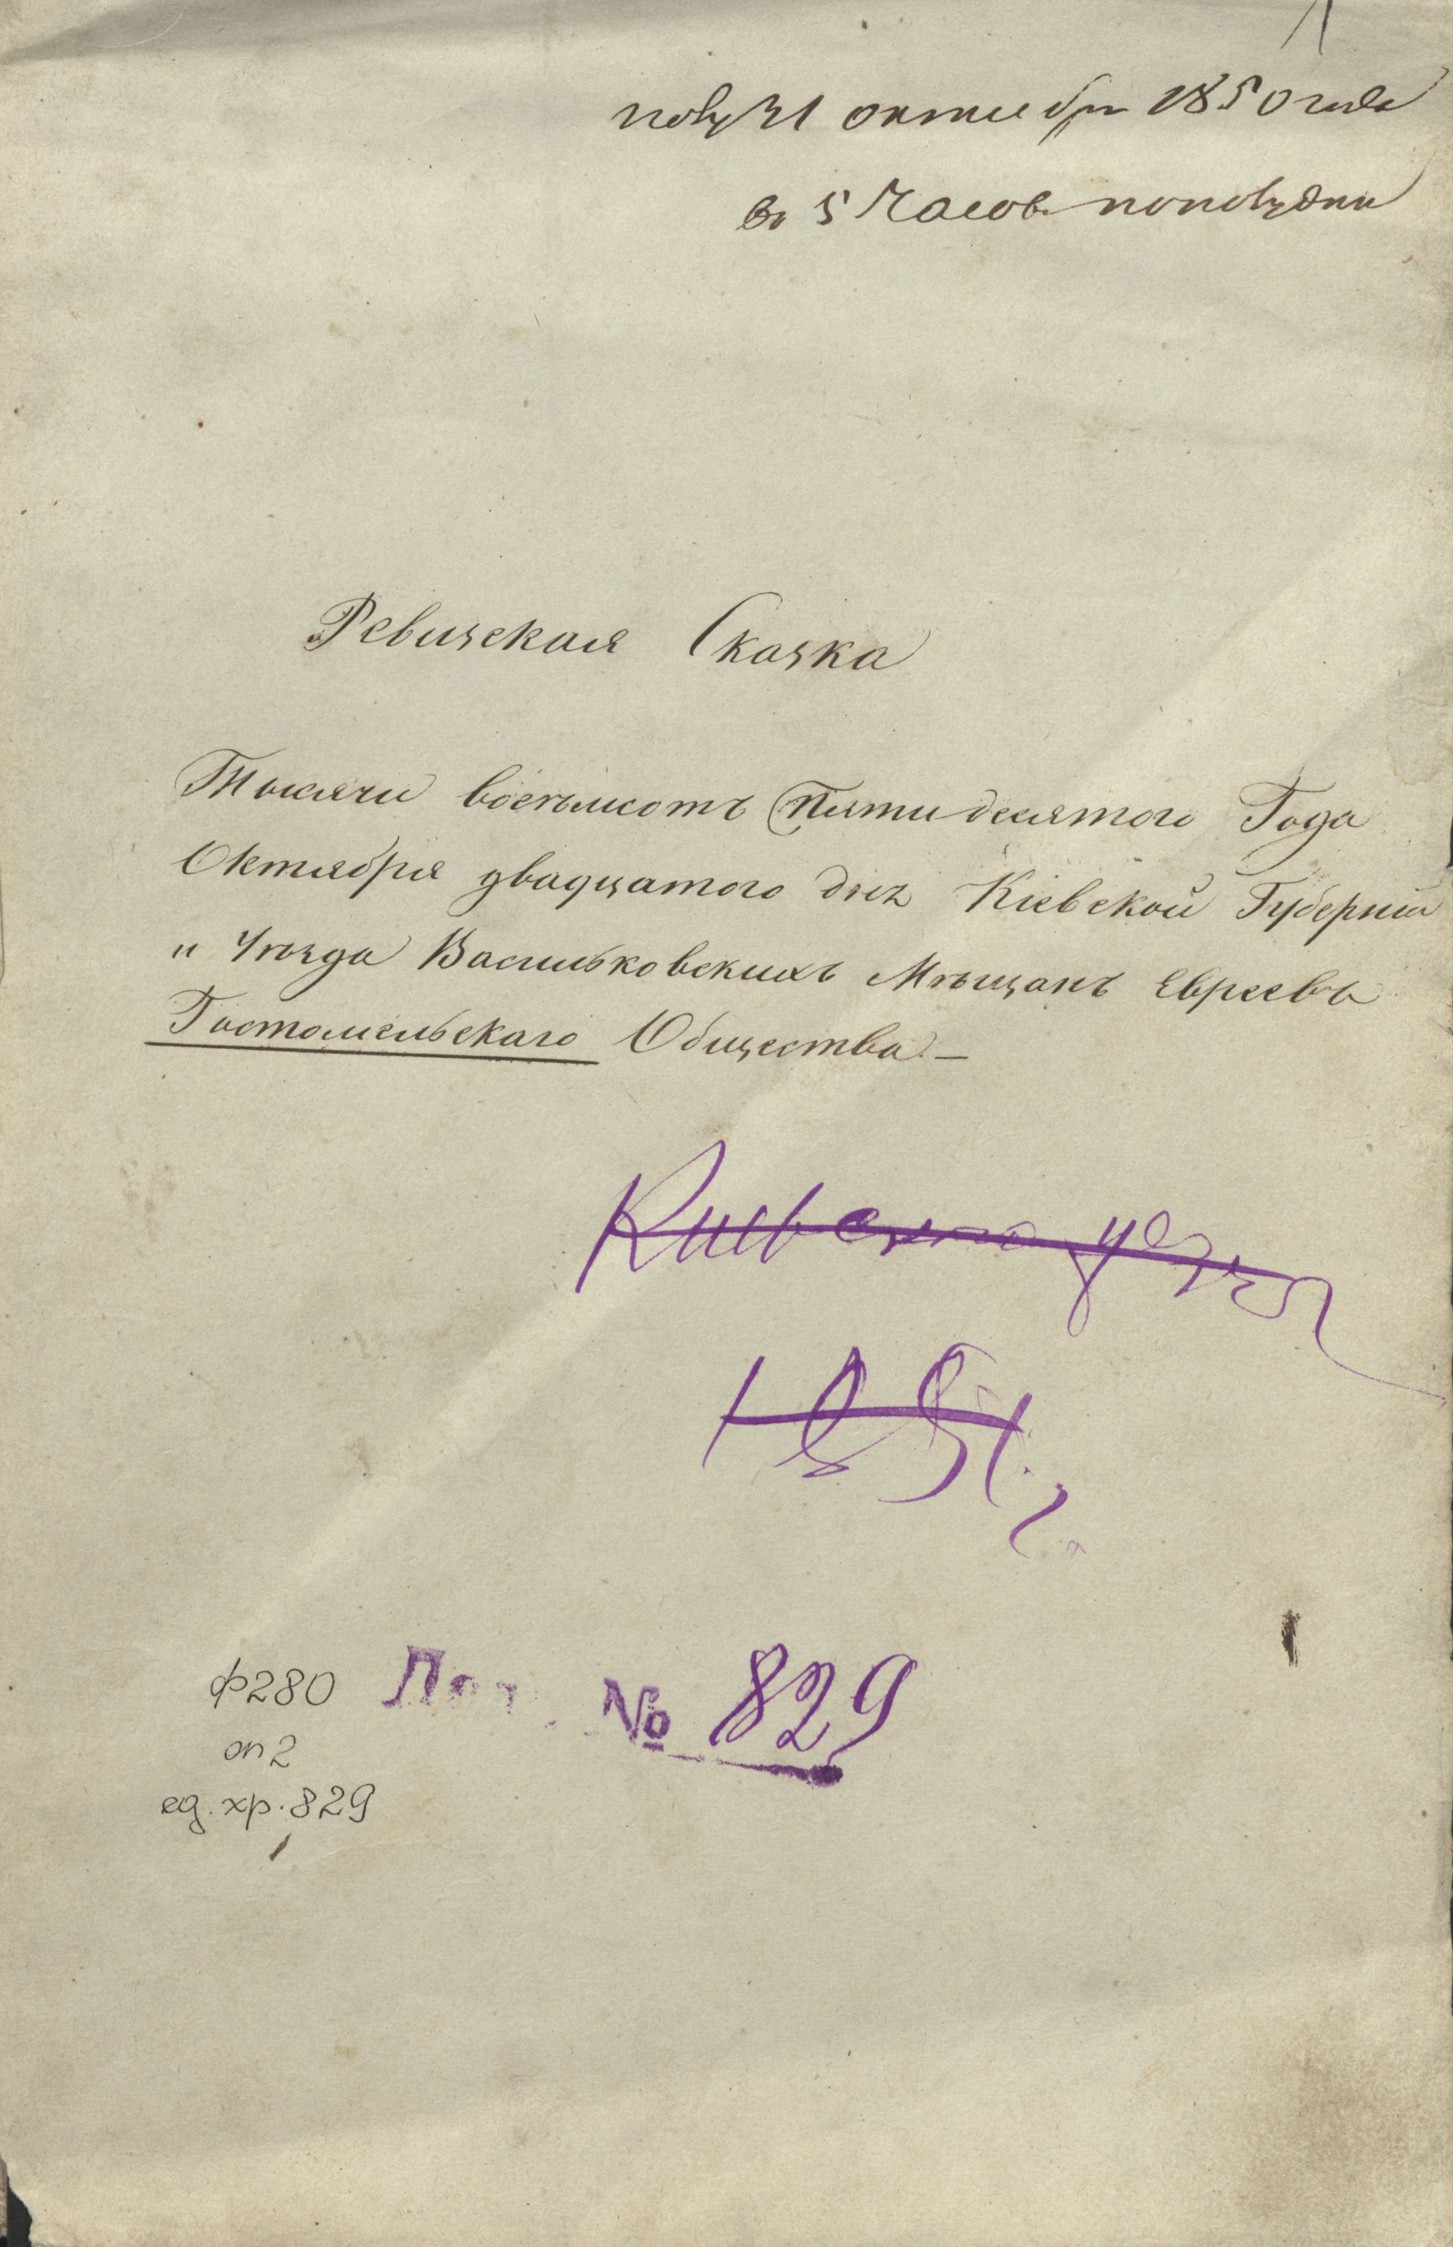 1
полу 31 октября 1850 года
въ 5 часов пополудни
Ревизская Сказка
Тысячи восемьсотъ Пятидесятого Года
Октября двадцатого дня Кіевской Губерніи
и Уѣзда Васильковскихъ Мѣщанъ Евреевъ
Гостомельскаго Общества —
Киевского уезда
1851 г.
ф 280
оп 2
ед. хр. 829
№ 829